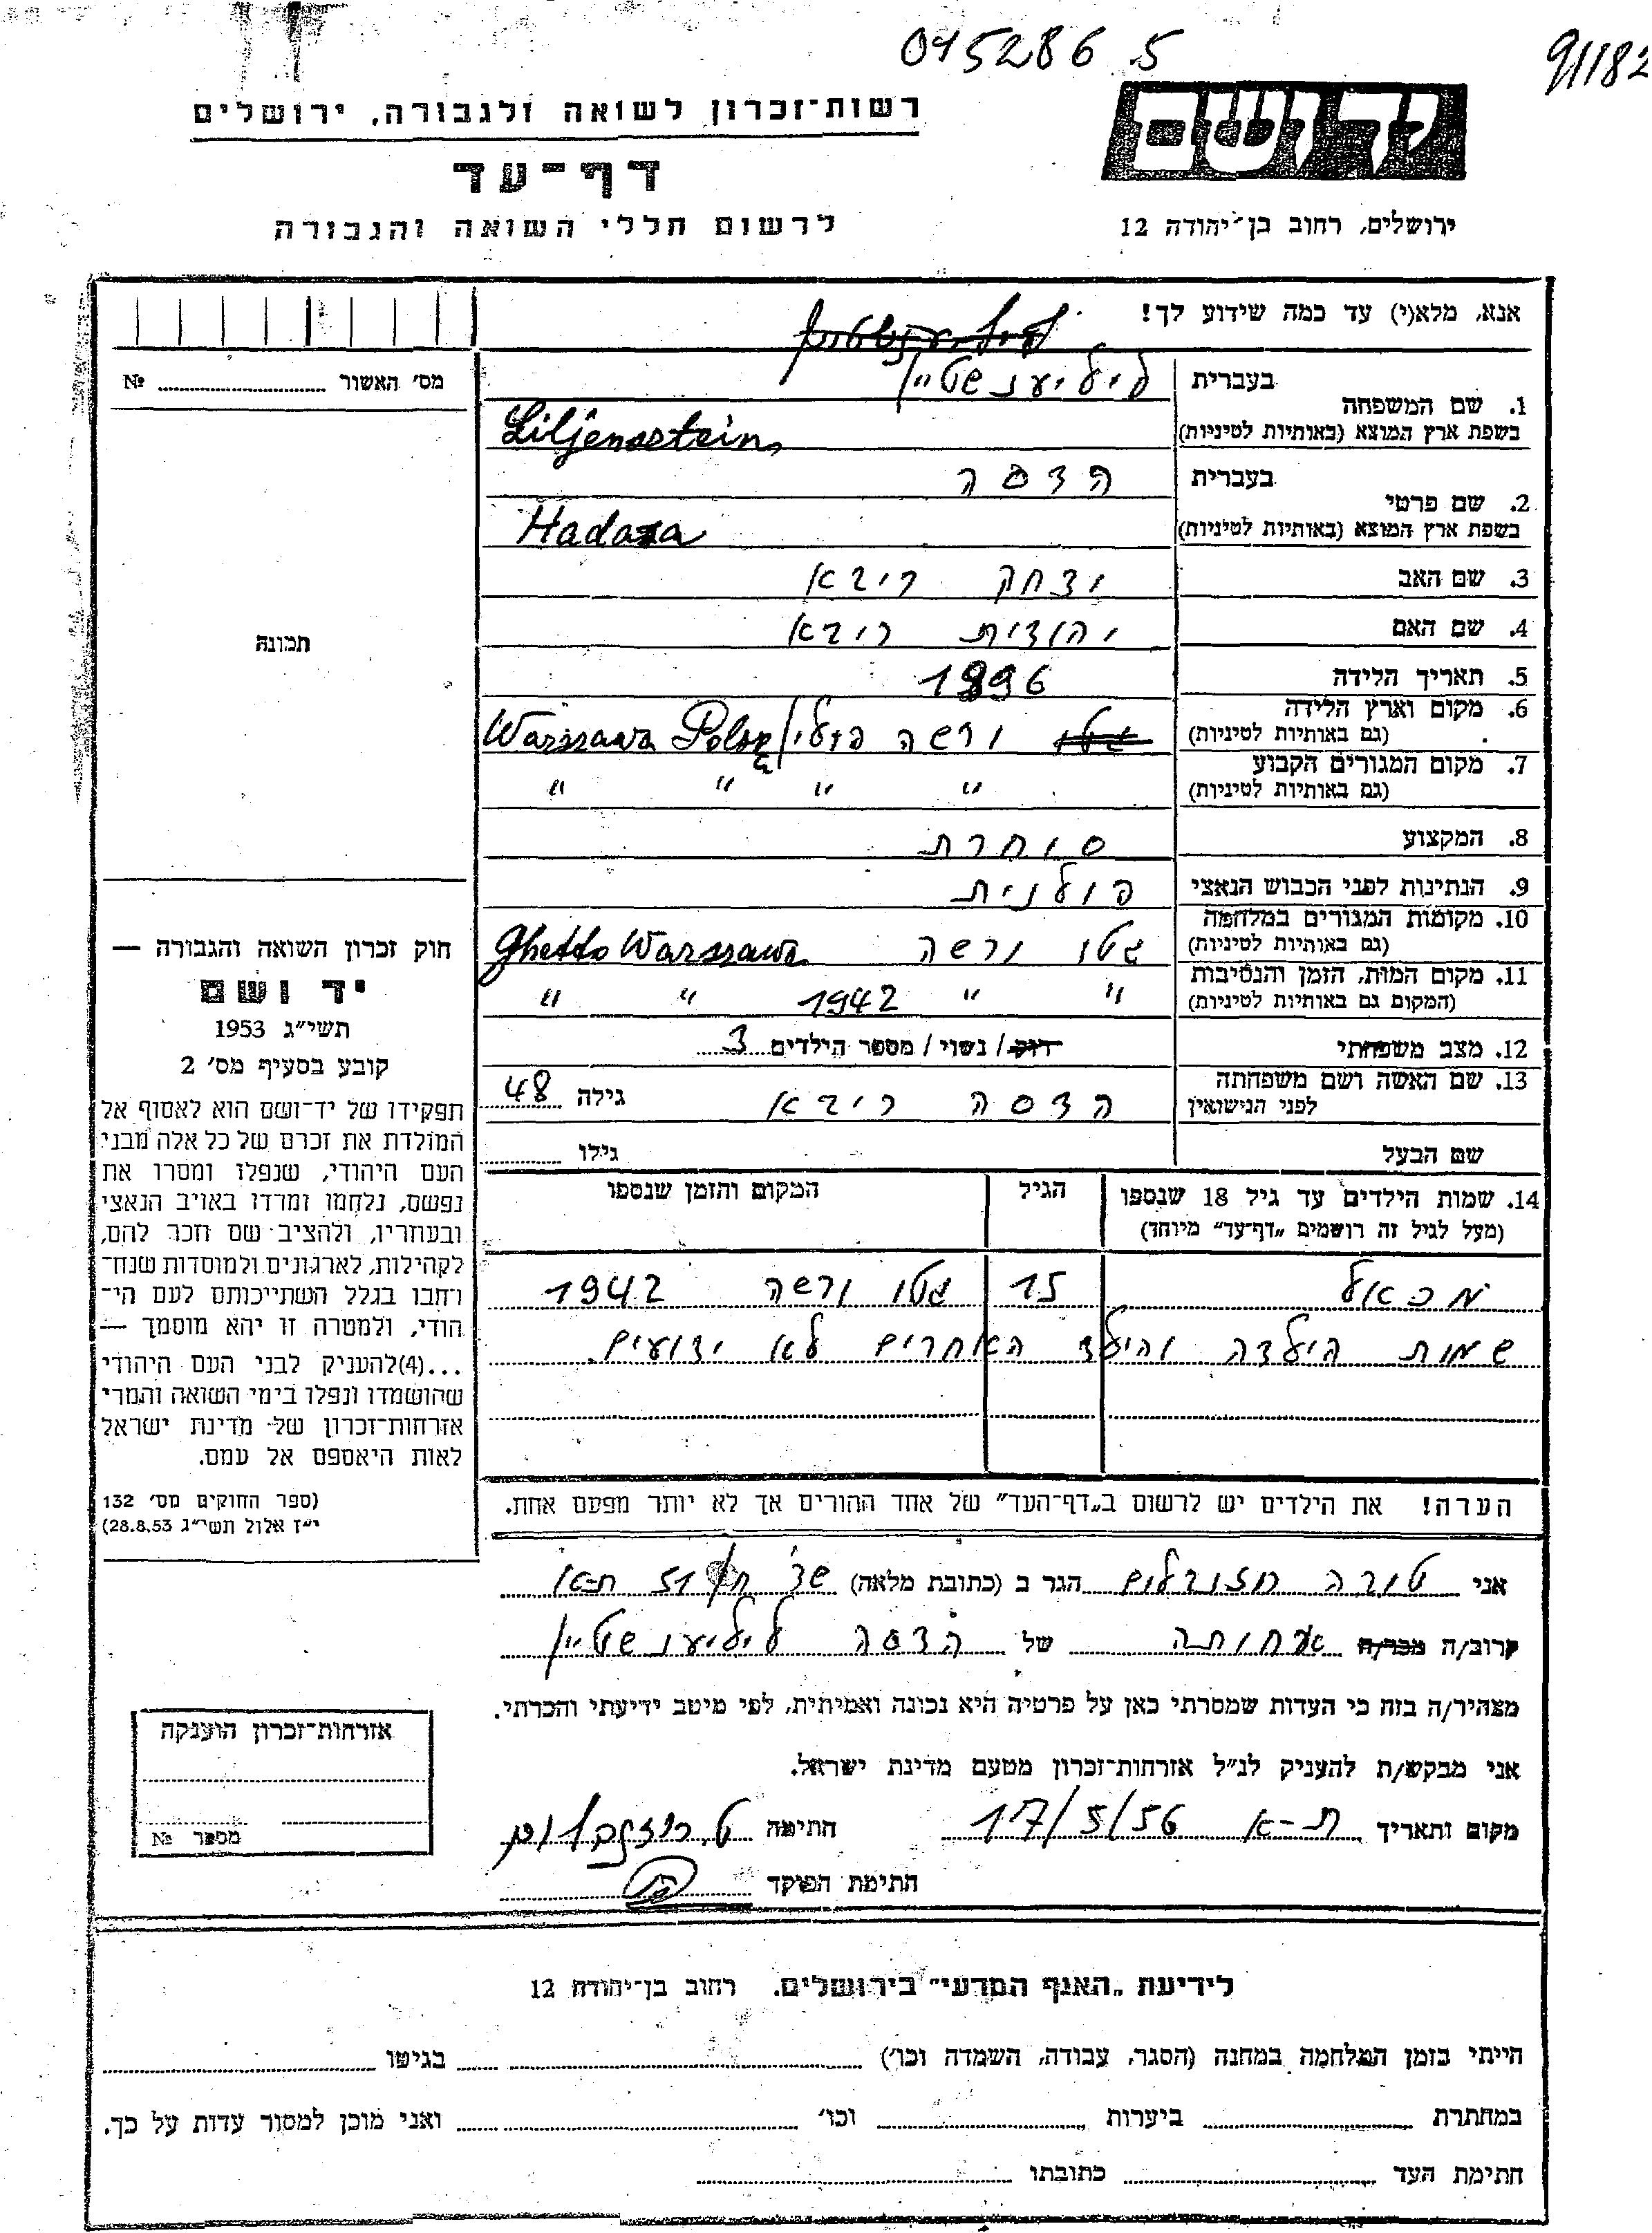 015286 5
91182
רשות־זכרון לשואה ולגבורה, ירושלים
יד ושם
דף־עד
לרשום חללי השואה והגבורה
ירושלים, רחוב בן־יהודה 12
אנא, מלא(י) עד כמה שידוע לך!
מס׳ האשור № 
1. שם המשפחה
בעברית ליליענשטיין
בשפת ארץ המוצא (באותיות לטיניות) Liljensstein
2. שם פרטי
בעברית הדסה
בשפת ארץ המוצא (באותיות לטיניות) Hadasa
3. שם האב יצחק ריבא
4. שם האם יהודית ריבא
5. תאריך הלידה 1896
6. מקום וארץ הלידה גטו ורשה פולין Warszawa Polsk
(גם באותיות לטיניות)
7. מקום המגורים הקבוע " " " "
(גם באותיות לטיניות)
8. המקצוע סוחרת
9. הנתינות לפני הכבוש הנאצי פולנית
10. מקומות המגורים במלחמה גטו ורשה Ghetto Warszawa
(גם באותיות לטיניות)
11. מקום המות, הזמן והנסיבות " " 1942 " "
(המקום גם באותיות לטיניות)
12. מצב משפחתי רוק / נשוי / מספר הילדים 3
13. שם האשה ושם משפחתה לפני הנישואין הדסה ריבא גילה 48
שם הבעל גילו
14. שמות הילדים עד גיל 18 שנספו
(מעל לגיל זה רושמים „דף־עד״ מיוחד)
הגיל
המקום והזמן שנספו
מכאל 15 גטו ורשה 1942
שמות הילדה והילד האחרים לא ידועים.
הערה! את הילדים יש לרשום ב„דף־העד״ של אחד ההורים אך לא יותר מפעם אחת.
תמונה
חוק זכרון השואה והגבורה —
יד ושם
תשי״ג 1953
קובע בסעיף מס׳ 2
תפקידו של יד־ושם הוא לאסוף אל
המולדת את זכרם של כל אלה מבני
העם היהודי, שנפלו ומסרו את
נפשם, נלחמו ומרדו באויב הנאצי
ובעוזריו, ולהציב שם וזכר להם,
לקהילות, לארגונים ולמוסדות שנח־
רבו בגלל השתייכותם לעם הי־
הודי, ולמטרה זו יהא מוסמך —
...(4)להעניק לבני העם היהודי
שהושמדו ונפלו בימי השואה והמרי
אזרחות־זכרון של מדינת ישראל
לאות היאספם אל עמם.
(ספר החוקים מס׳ 132
י״ז אלול תשי״ג 28.8.53)
אני טובה הגר ב (כתובת מלאה) 51 ת-א
קרוב/ה מכר/ה אחותה של הדסה ליליענשטיין
מצהיר/ה בזה כי העדות שמסרתי כאן על פרטיה היא נכונה ואמיתית, לפי מיטב ידיעתי והכרתי.
אני מבקש/ת להעניק לנ״ל אזרחות־זכרון מטעם מדינת ישראל.
מקום ותאריך ת-א 17/5/56 חתימה
חתימת הפוקד
אזרחות־זכרון הוענקה
מספר №
לידיעת „האגף המדעי״ בירושלים. רחוב בן־יהודה 12
הייתי בזמן המלחמה במחנה (הסגר, עבודה, השמדה וכו׳) בגיטו
במחתרת ביערות וכו׳ ואני מוכן למסור עדות על כך.
חתימת העד כתובתו